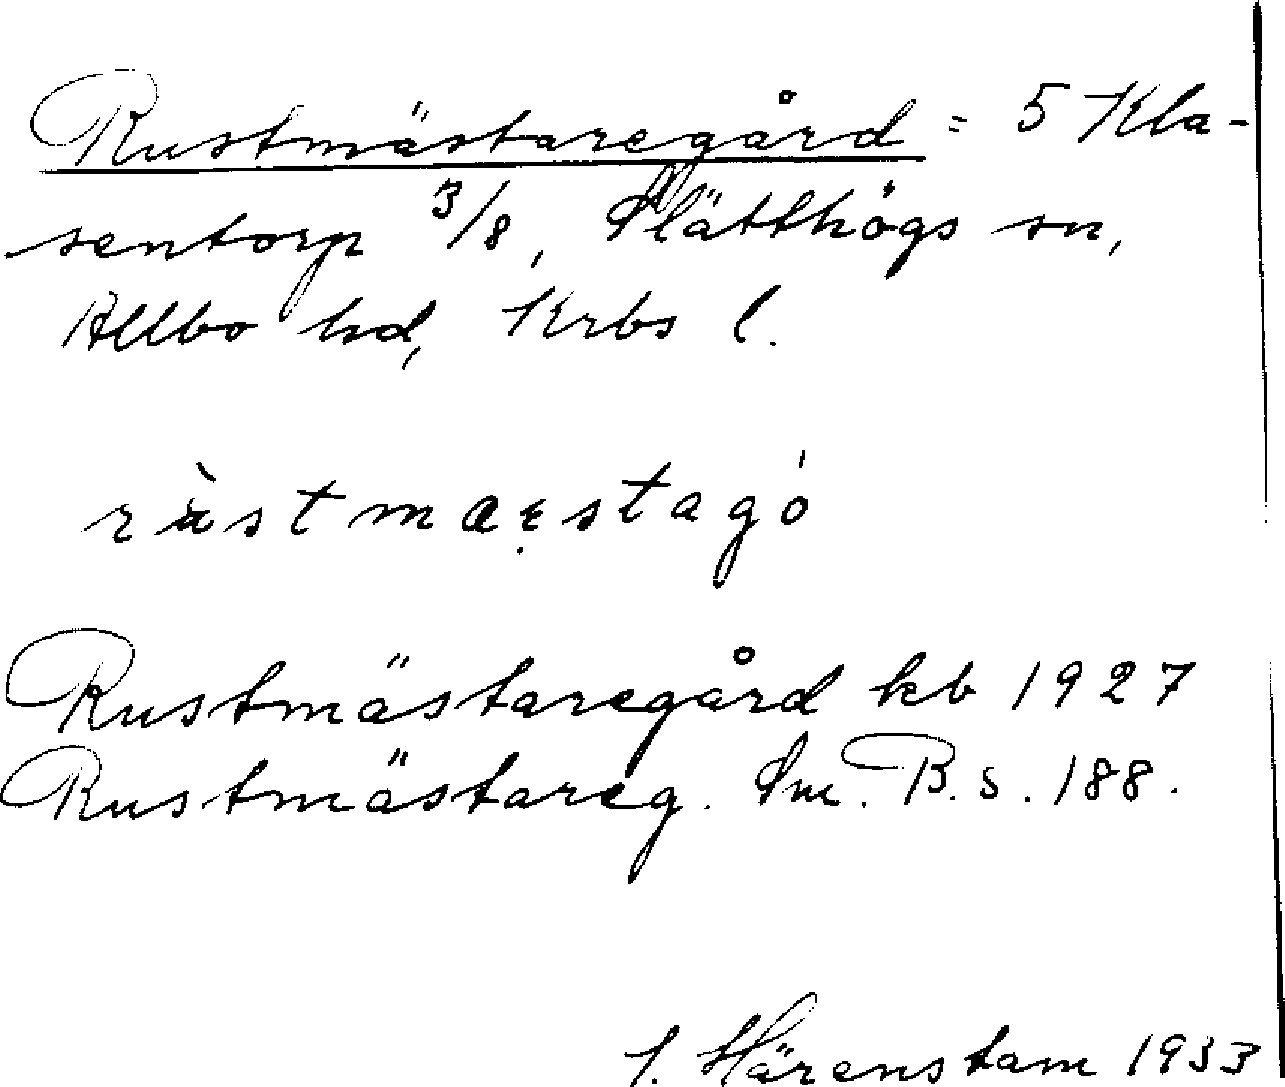 Rustmästaregård = 5 Kla-
sentorp 3/8, Slätthögs sn,
Allbo hd, Krbs l.
Rustmästaregård kb 1927
Rustmästareg. Sm. B. s. 188.
Härenstam 1933